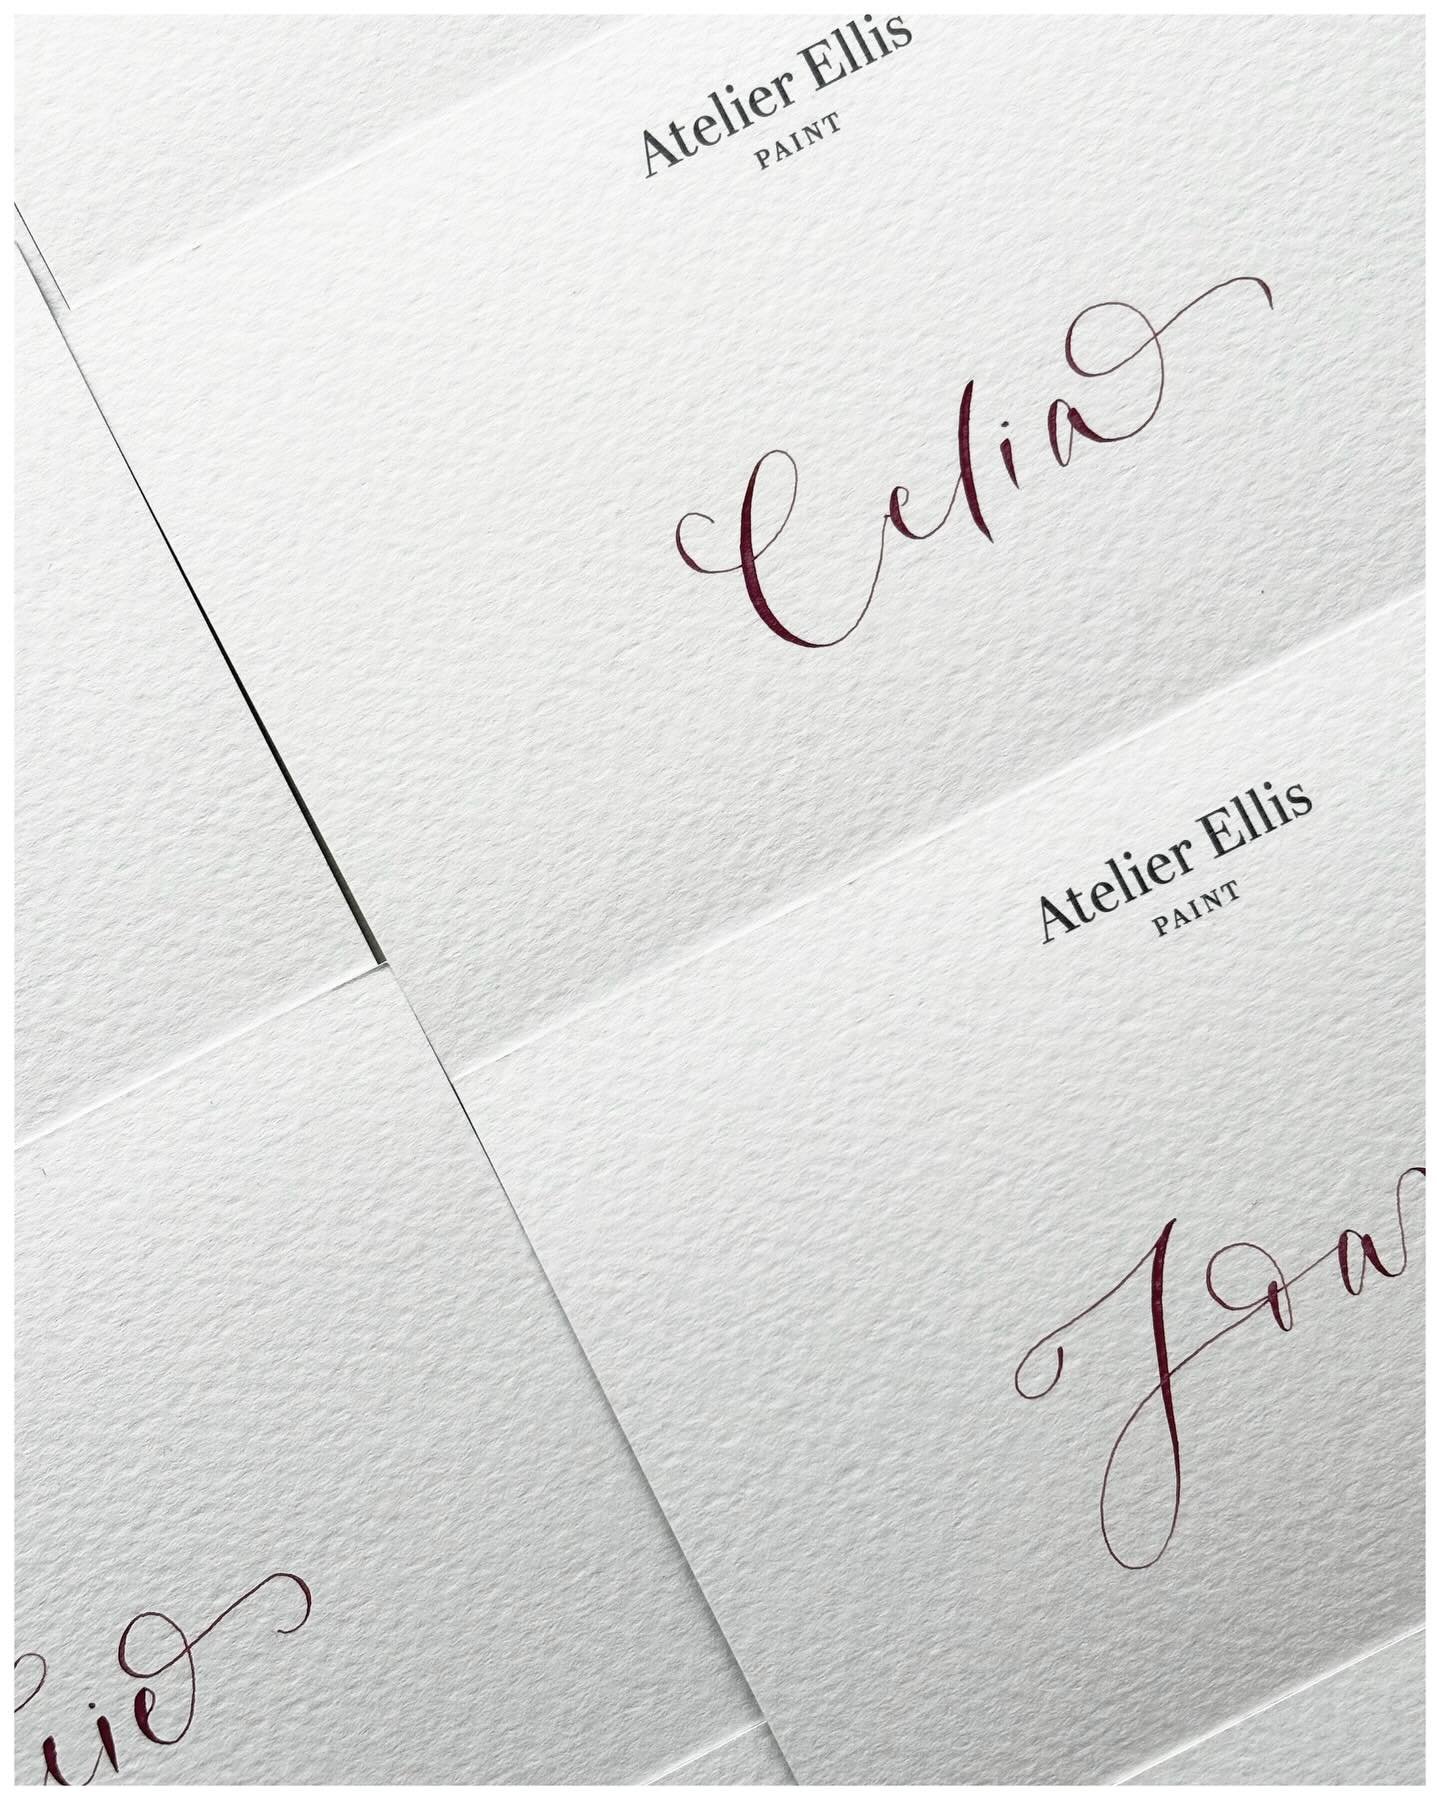 Atelier Ellis
PAINT
Celia
Atelier Ellis
PAINT